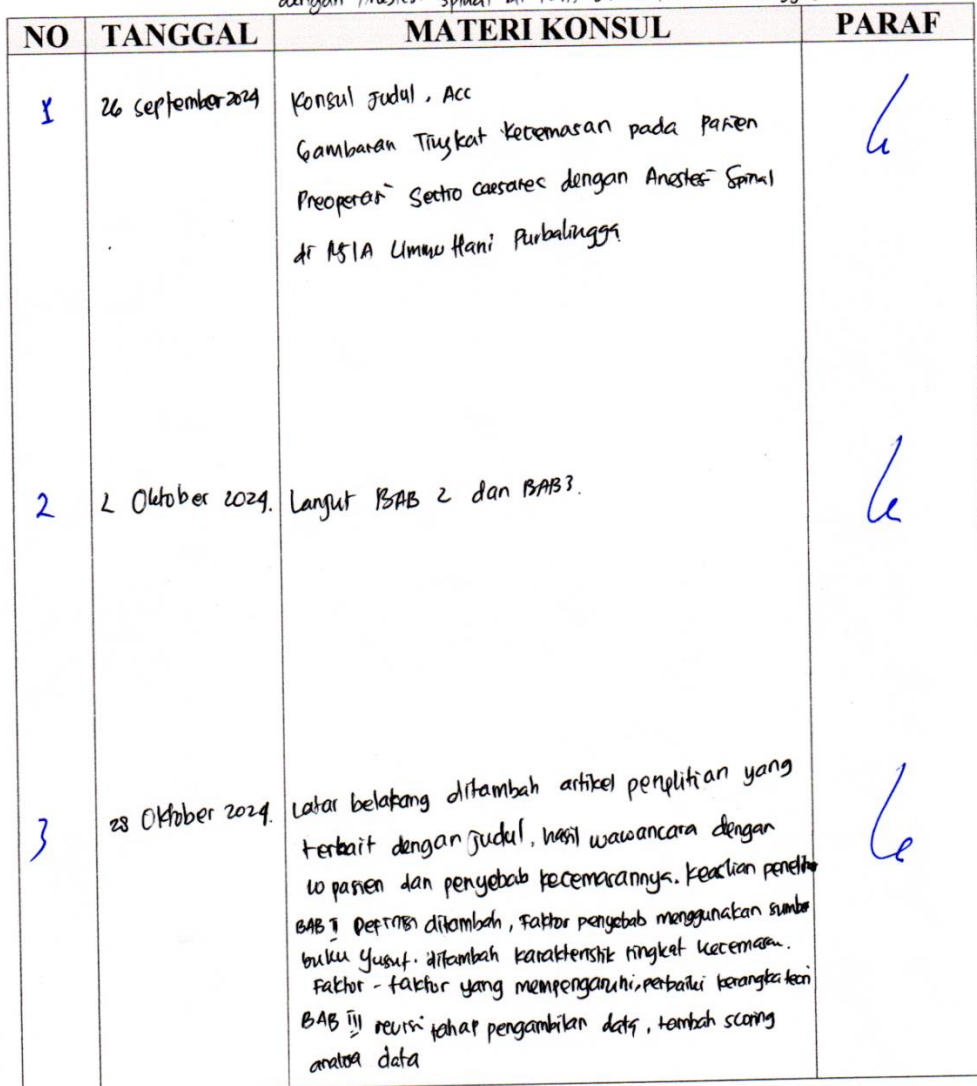 dengan Anestesi Spinal di
NO TANGGAL MATERI KONSUL PARAF
1 26 September 2024 Konsul Judul, Acc
Gambaran Tingkat Kecemasan pada Pasien
Preoperasi Sectio caesarea dengan Anestesi Spinal
di RSIA Ummu Hani Purbalingga
2 2 Oktober 2024. Lanjut BAB 2 dan BAB3.
3 28 Oktober 2024. Latar belakang ditambah artikel penelitian yang
terkait dengan judul, hasil wawancara dengan
10 pasien dan penyebab kecemasannya. keaslian penelitian
BAB II Definisi ditambah, Faktor penyebab menggunakan sumber
buku Yusuf. ditambah karakteristik tingkat kecemasan.
Faktor - faktor yang mempengaruhi, perbaiki kerangka teori
BAB III revisi tahap pengambilan data, tambah scoring
analisa data